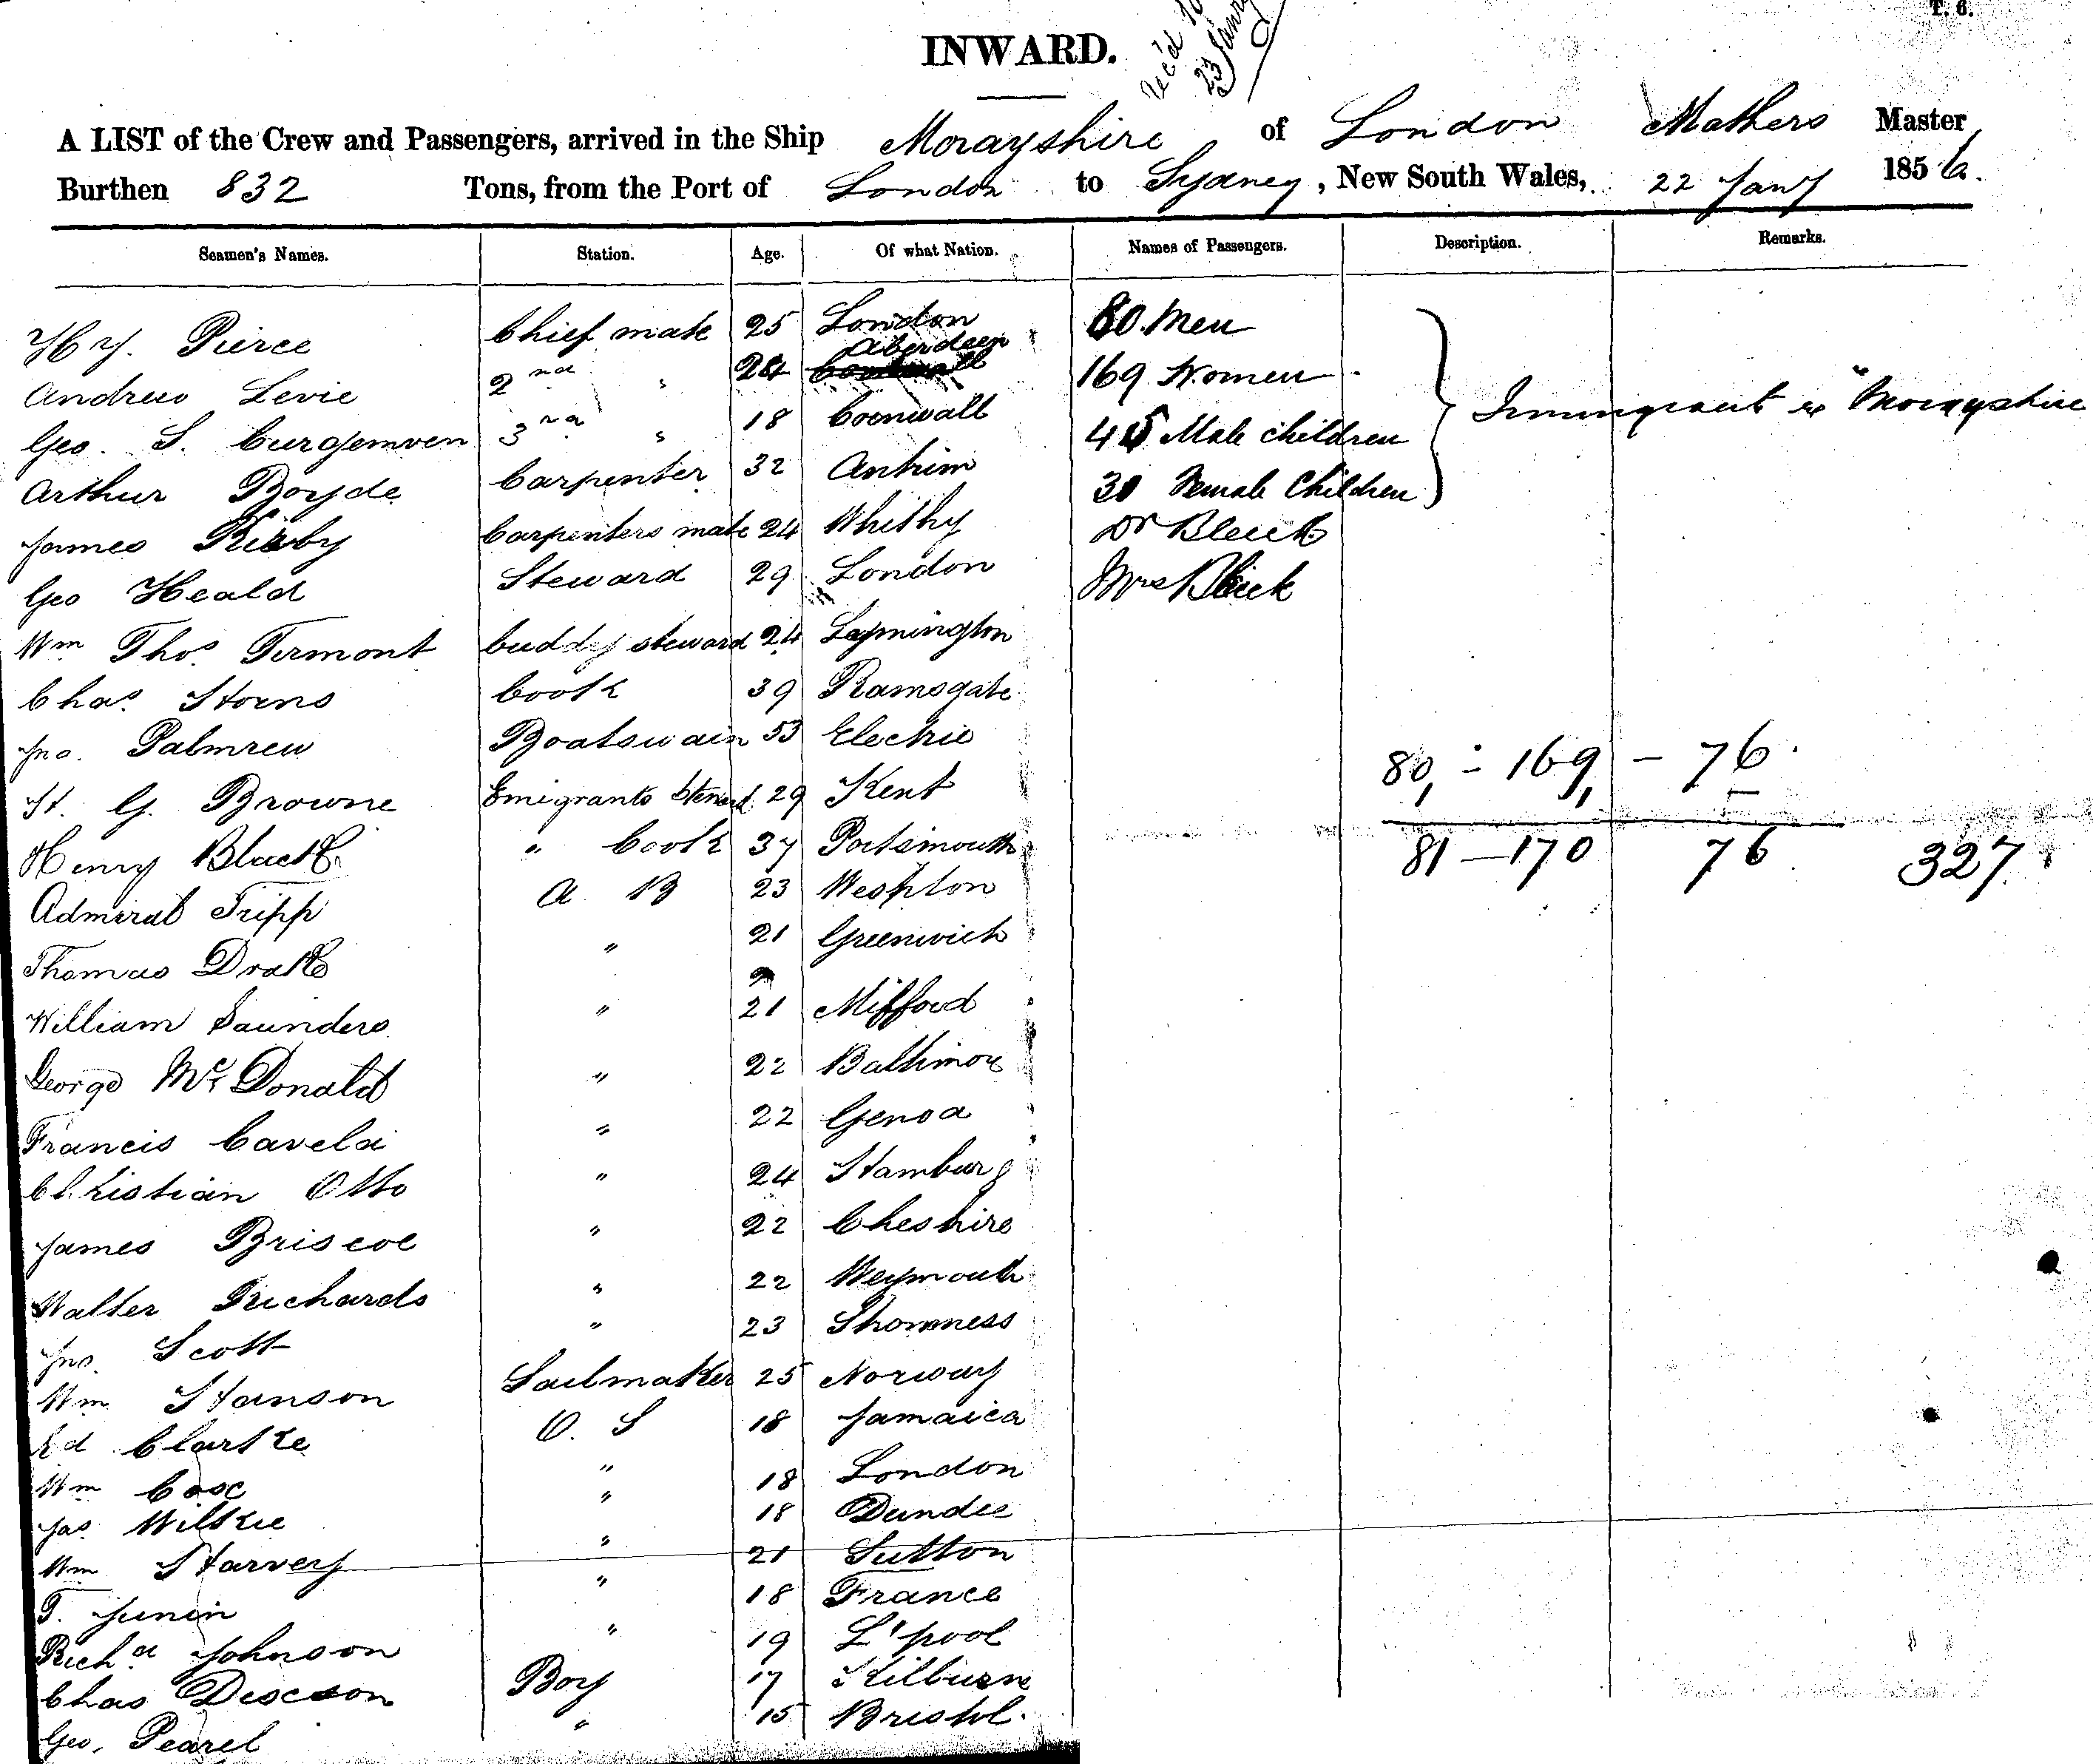 T. 6.
INWARD.
23 Jany
A LIST of the Crew and Passengers, arrived in the Ship Morayshire of London Mathers Master
Burthen 832 Tons, from the Port of London to Sydney, New South Wales, 22 Jany 1856.
Seamen's Names. Station. Age. Of what Nation. Names of Passengers. Description. Remarks.
Hy. Pierce Chief mate 25 London 80 Men
Andrew Levie 2nd " 24 Aberdeen 169 Women
Geo. S. Curgenven 3rd " 18 Cornwall 45 Male Children Immigrant ex "Morayshire
Arthur Boyde Carpenter 32 Antrim 30 Female Children
James Kirby Carpenters mate 24 Whitby Dr Bleeck
Geo Heald Steward 29 London Mrs Bleeck
Wm Thos Termont Cuddy steward 24 Lymington
Chas. Horns Cook 39 Ramsgate
Jno. Palmrew Boatswain 53 Electric
H. G. Browne Emigrants Steward 29 Kent
80, - 169, - 76
Henry Black " Cook 37 Portsmouth
81 - 170 76 327
Admiral Tripp A B 23 Weshton
Thomas Drake " 21 Greenwich
William Saunders " 21 Milford
George McDonald " 22 Baltimore
Francis Cavelai " 22 Genoa
Christian Otto " 24 Hamburg
James Briscoe " 22 Cheshire
Walter Richards " 22 Weymouth
Jno. Scott " 23 Shorness
Wm Hanson Sailmaker 25 Norway
Ed Clarke O. S 18 Jamaica
Wm Cox " 18 London
Jas Wilkie " 18 Dundee
Wm Harvey " 21 Sutton
T. Junin " 18 France
Richd Johnson " 19 L'pool
Chas Dixon Boy 17 Kilburn
Geo. Pearel " 15 Bristol.